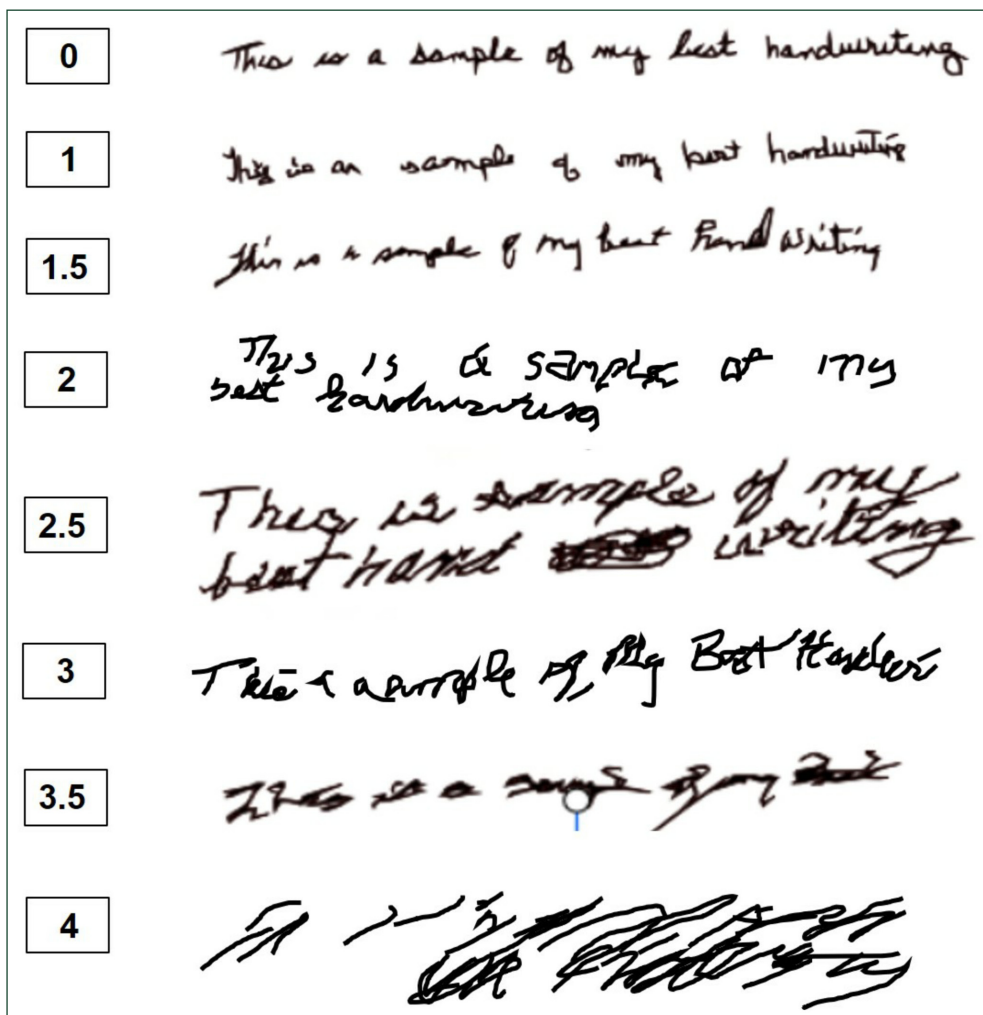 0 This is a sample of my best handwriting
1 This is an sample of my best handwriting
1.5 This is a sample of my best hand writing
2 This is a sample of my
best handwriting
2.5 This is sample of my
best hand writing
3 a sample of My Best
3.5 This is a of my
4